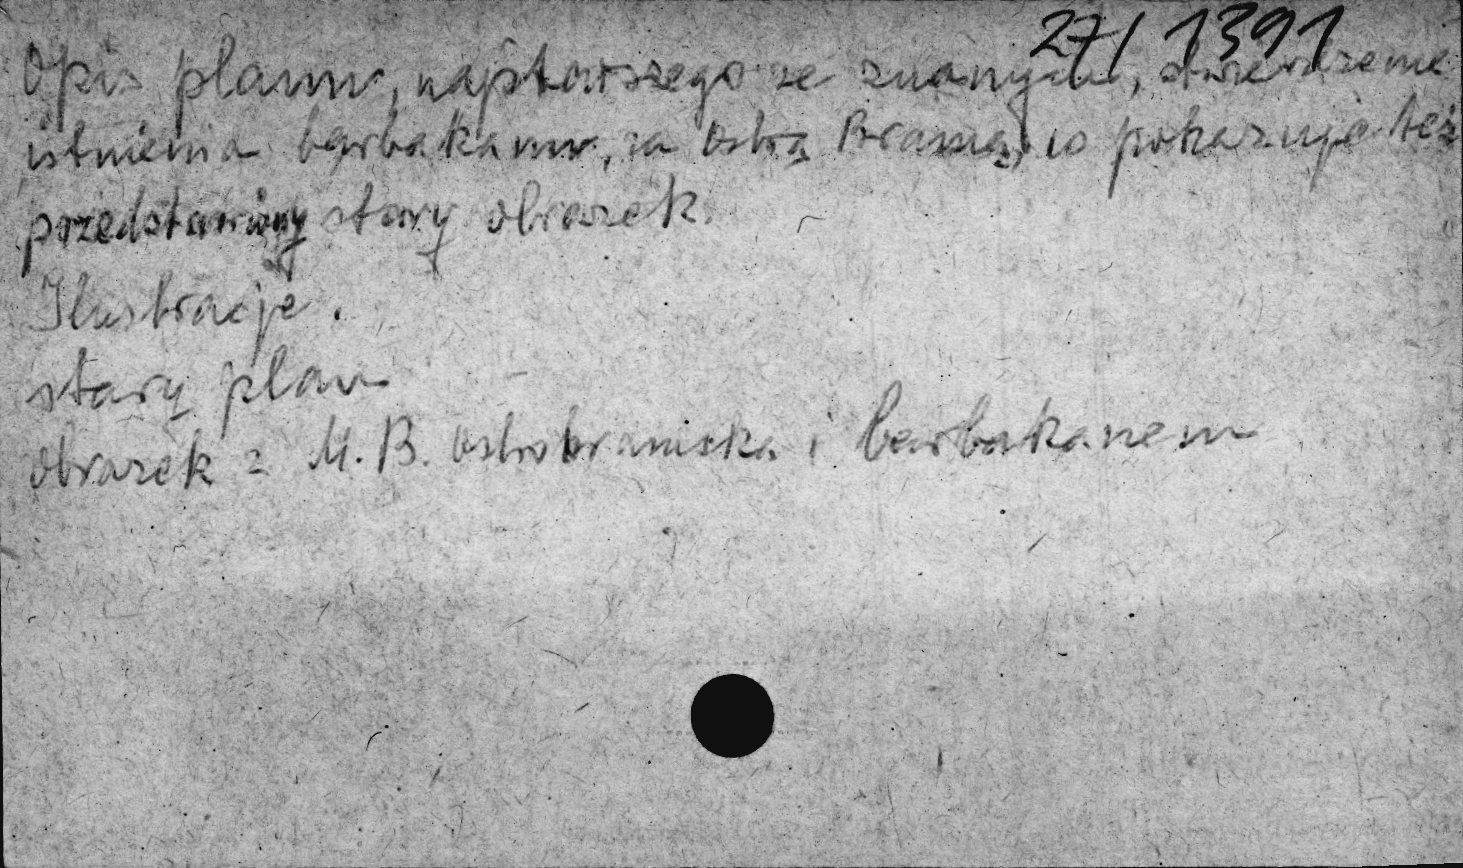 27/1391
Opis planu, najstarszego ze znanych, stwierdzenie
istnienia barbakanu, za Ostrą Bramą, co pokazuje też
przedstawiony stary obrazek.
Ilustracje.
stary plan
obrazek z M.B. Ostrobramska i barbakanem